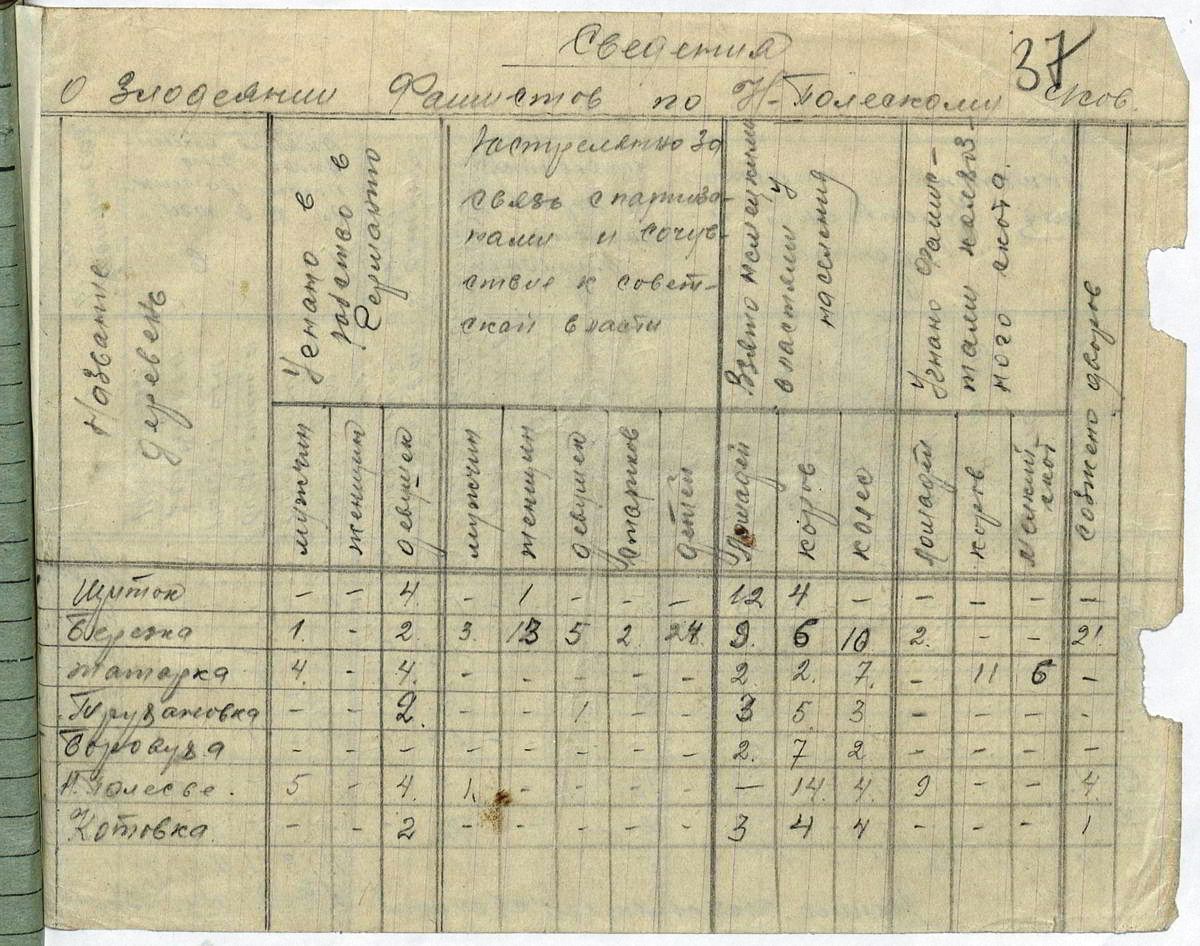 Сведения
37
О Злодеянии Фашистов по Н-Полескому сков.
Название деревень
Угнано в рабство в Германию
Растрелянно за
связь с партиза-
нами и сочув-
ствие к совет-
ской власти
Взято немецкими властями у населения
Угнано Фашис-
тами колхоз-
ного скота.
Созжено дворов
мужчин женщин девушек мужчин женщин девушек стариков детей Лошадей коров колес Лошадей коров Мелкий скот
Щиток - - 4. - 1 - - - 12 4 - - - - -
Березка 1. - 2. 3. 13 5 2. 24. 9. 6 10 2. - - 21
Татарка 4. - 4. - - - - - 2. 2. 7. - 11 6 -
Трузановка - - 2. - - 1 - - 3 5. 3. - - - -
Боровуха - - - - - - - - 2. 7 2 - - - -
Н. Полесье. 5 - 4. 1. - - - - - 14. 4. 9 - - 4.
Котовка - - 2 - - - - - 3 4 4 - - - 1